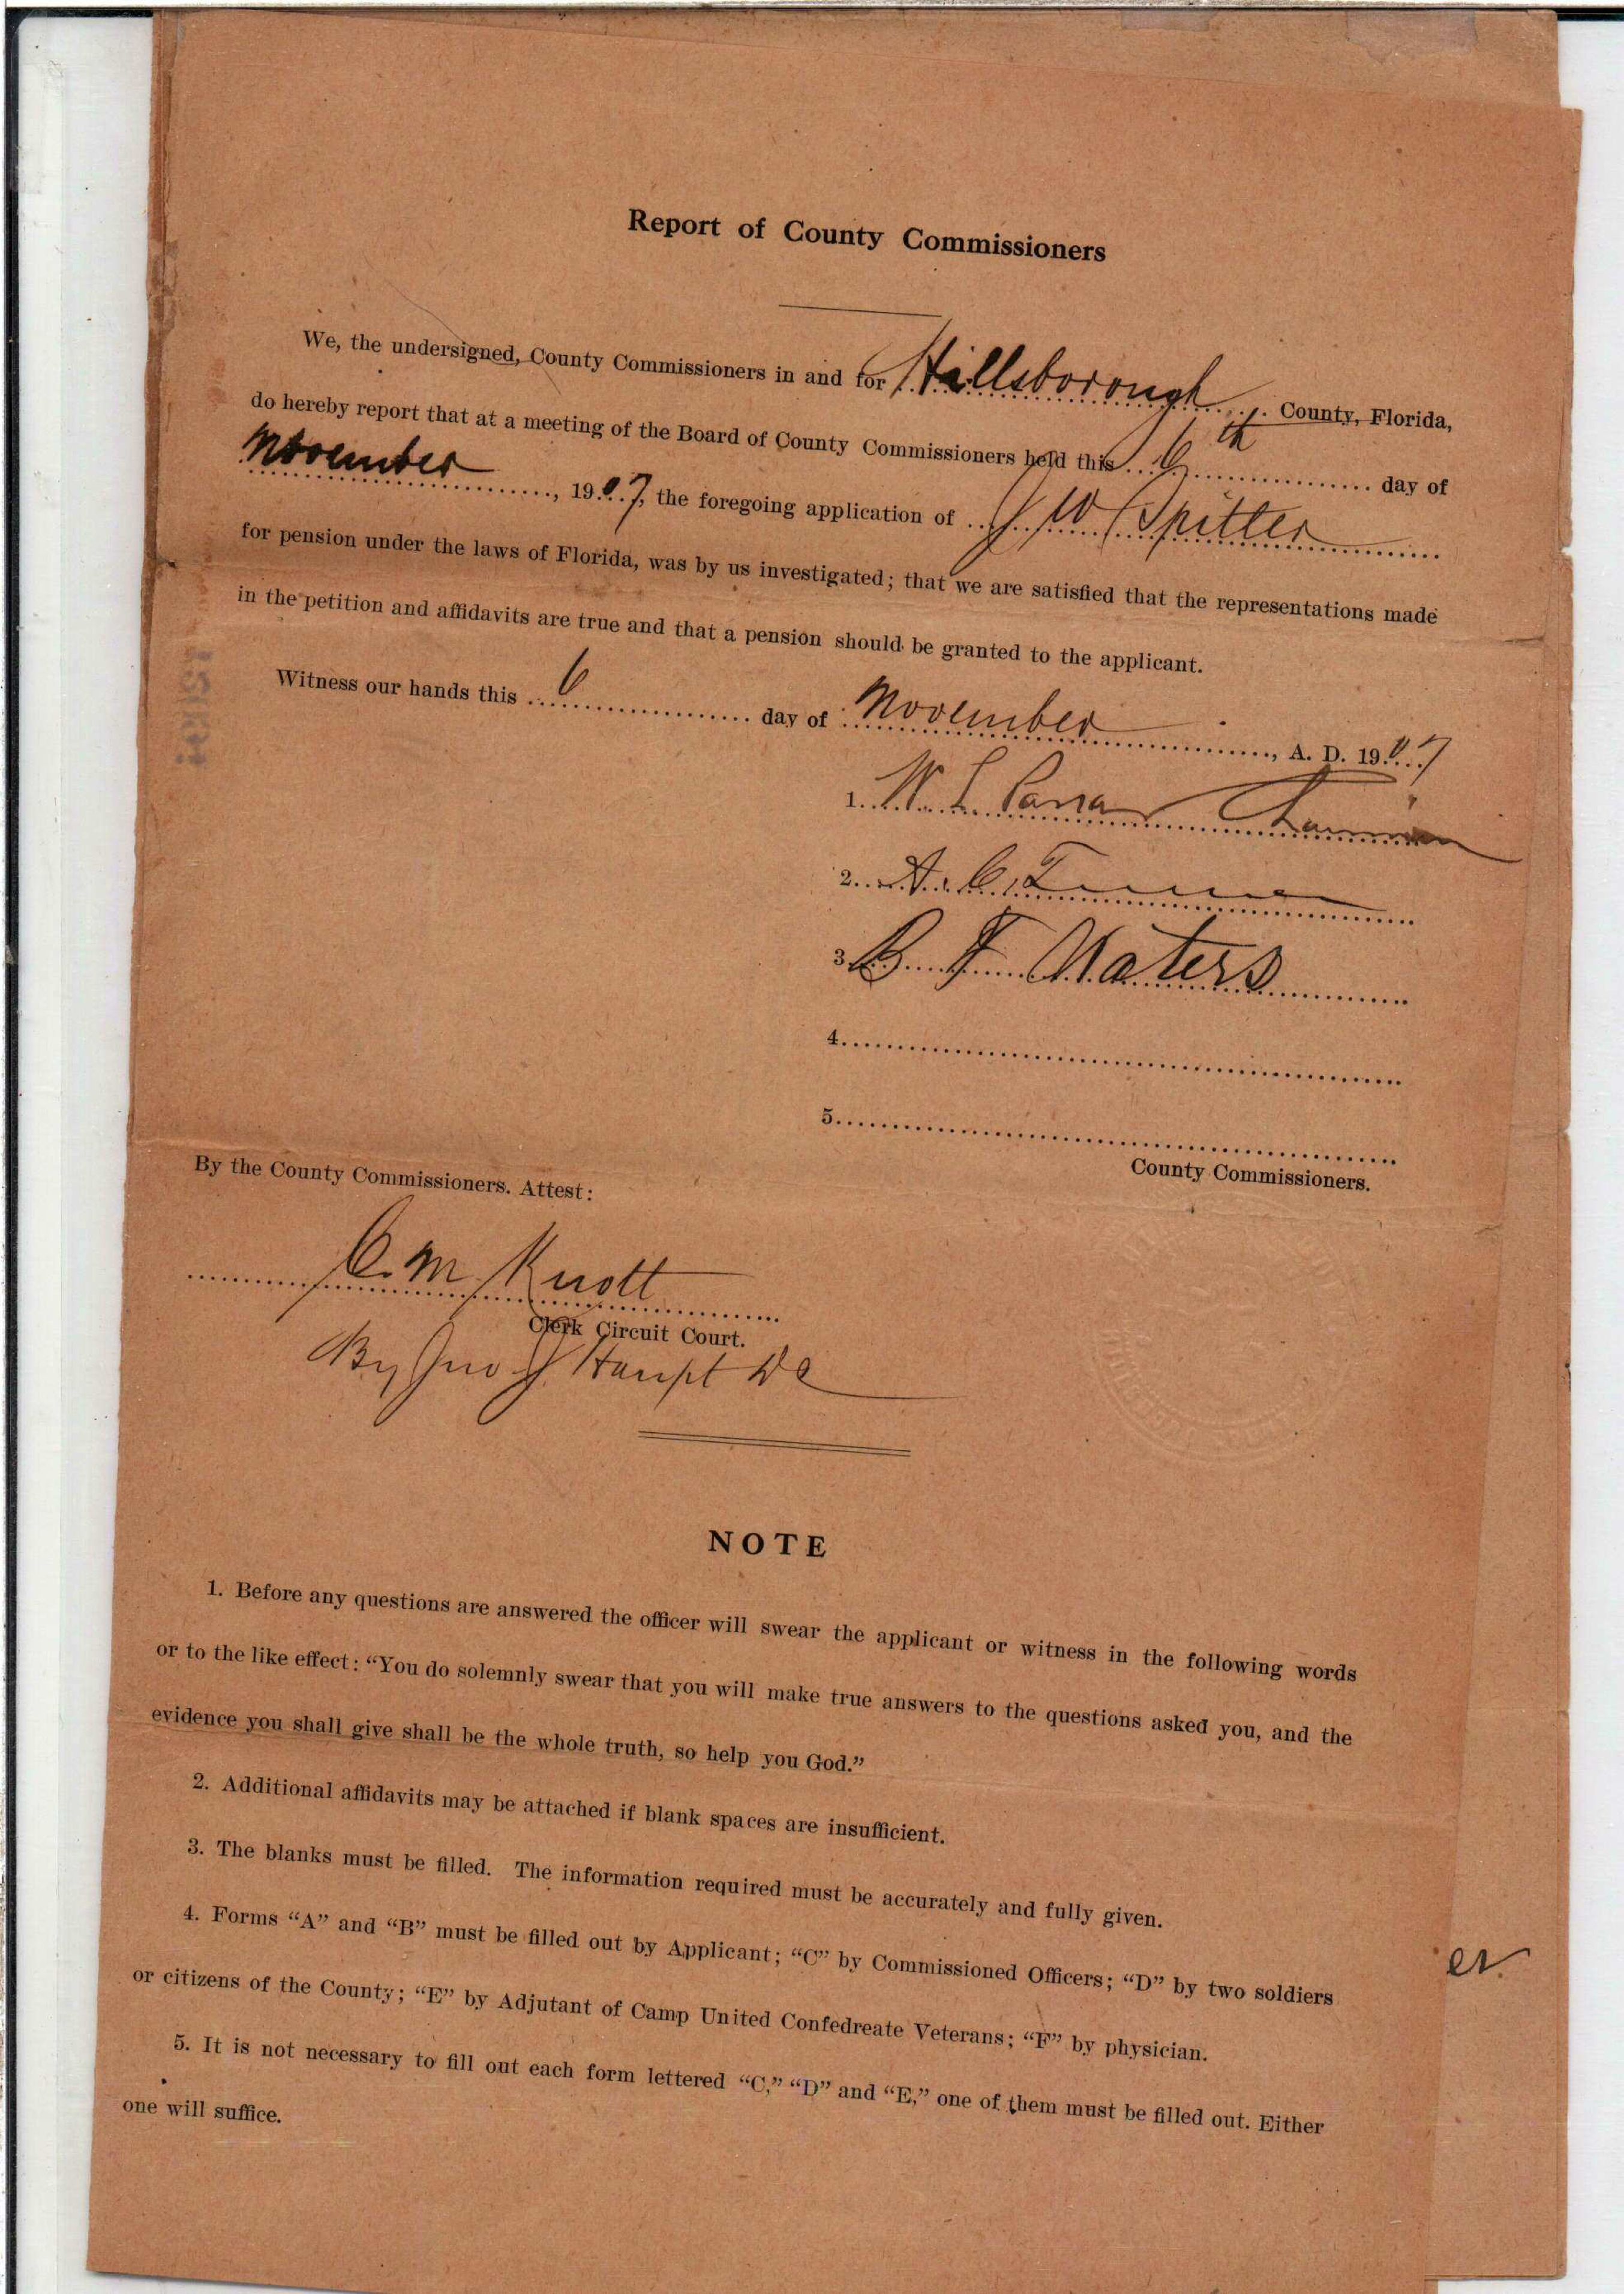 Report of County Commissioners
We, the undersigned, County Commissioners in and for Hillsborough County, Florida,
do hereby report that at a meeting of the Board of County Commissioners held this 6th day of
November, 1907, the foregoing application of J W Spitler
for pension under the laws of Florida, was by us investigated; that we are satisfied that the representations made
in the petition and affidavits are true and that a pension should be granted to the applicant.
Witness our hands this 6 day of November, A. D. 1907
1. W. L. Chairman
2. A. C.
3 B F Waters
4.
5.
County Commissioners.
By the County Commissioners. Attest:
C. M Knott
Clerk Circuit Court.
By Jno J Haupt DC
NOTE
1. Before any questions are answered the officer will swear the applicant or witness in the following words
or to the like effect: “You do solemnly swear that you will make true answers to the questions asked you, and the
evidence you shall give shall be the whole truth, so help you God.”
2. Additional affidavits may be attached if blank spaces are insufficient.
3. The blanks must be filled. The information required must be accurately and fully given.
4. Forms “A” and “B” must be filled out by Applicant; “C” by Commissioned Officers; “D” by two soldiers
or citizens of the County; “E” by Adjutant of Camp United Confedreate Veterans; “F” by physician.
5. It is not necessary to fill out each form lettered “C,” “D” and “E,” one of them must be filled out. Either
one will suffice.
er